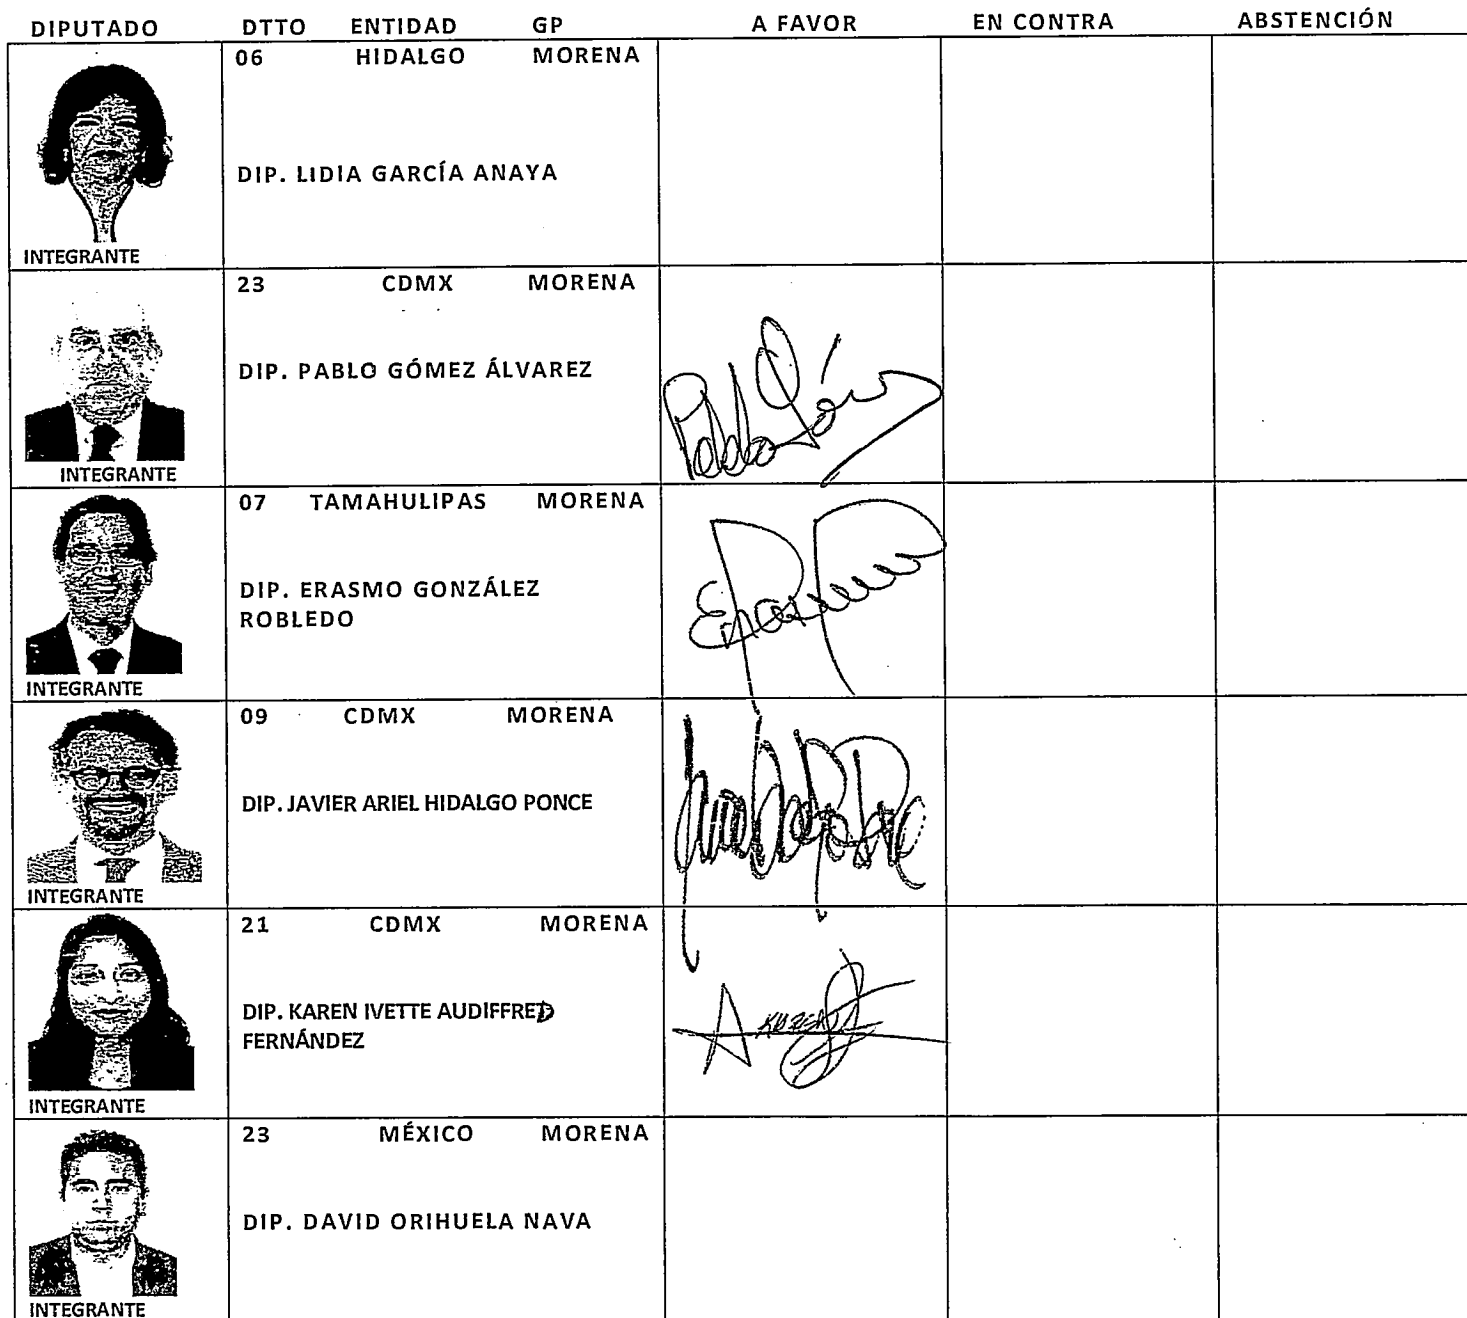 DIPUTADO DTTO ENTIDAD GP A FAVOR EN CONTRA ABSTENCIÓN
06 HIDALGO MORENA
DIP. LIDIA GARCÍA ANAYA
INTEGRANTE
23 CDMX MORENA
DIP. PABLO GÓMEZ ÁLVAREZ
INTEGRANTE
07 TAMAHULIPAS MORENA
DIP. ERASMO GONZÁLEZ
ROBLEDO
INTEGRANTE
09 CDMX MORENA
DIP. JAVIER ARIEL HIDALGO PONCE
INTEGRANTE
21 CDMX MORENA
DIP. KAREN IVETTE AUDIFFRED
FERNÁNDEZ
KAREN
INTEGRANTE
23 MÉXICO MORENA
DIP. DAVID ORIHUELA NAVA
INTEGRANTE